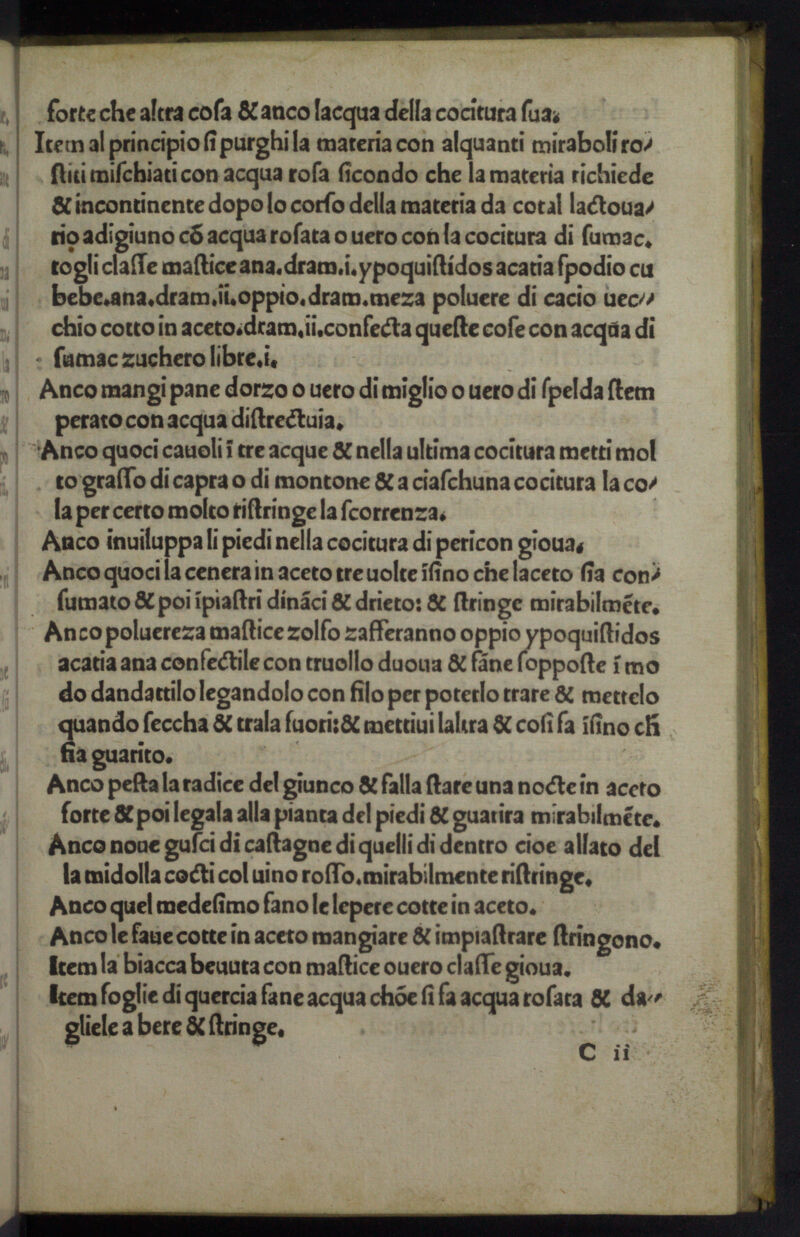 forte che altra coſa & anco lacqua della cocitura ſua.
Item al principio ſi purghi la materia con alquanti miraboli ro/
ſtiti miſchiati con acqua roſa ſicondo che la materia richiede
& incontinente dopo lo corſo della materia da cotal lactoua/
rio adigiuno cō acqua roſata o uero con la cocitura di ſumac.
togli claſſe maſtice ana.dram.i.ypoquiſtidos acatia ſpodio cu
bebe.ana.dram.ii.oppio.dram.meza poluere di cacio uec//
chio cotto in aceto.dram.ii.confecta queſte coſe con acqua di
ſumac zuchero libre.i.
Anco mangi pane dorzo o uero di miglio o uero di ſpelda ſtem
perato con acqua diſtrectuia.
Anco quoci cauoli ī tre acque & nella ultima cocitura metti mol
to graſſo di capra o di montone & a ciaſchuna cocitura la co/
la per certo molto riſtringe la ſcorrenza.
Anco inuiluppa li piedi nella cocitura di pericon gioua.
Anco quoci la cenera in aceto tre uolte īſino che laceto ſia con/
ſumato & poi īpiaſtri dināci & drieto: & ſtringe mirabilmēte.
Anco poluereza maſtice zolfo zafferanno oppio ypoquiſtidos
acatia ana confectile con truollo duoua & fāne ſoppoſte ī mo
do dandattilo legandolo con filo per poterlo trare & mettelo
quando ſeccha & trala fuori:& mettiui laltra & coſi fa īſino cħ
ſia guarito.
Anco peſta la radice del giunco & falla ſtare una nocte in aceto
forte & poi legala alla pianta del piedi & guarira mirabilmēte.
Anco noue guſci di caſtagne di quelli di dentro cioe allato del
la midolla cocti col uino roſſo.mirabilmente riſtringe.
Anco quel medeſimo fano le lepere cotte in aceto.
Anco le faue cotte in aceto mangiare & impiaſtrare ſtringono.
Item la biacca beuuta con maſtice ouero claſſe gioua.
Item foglie di quercia fane acqua chōe ſi fa acqua roſata & da//
gliele a bere & ſtringe.
C ii